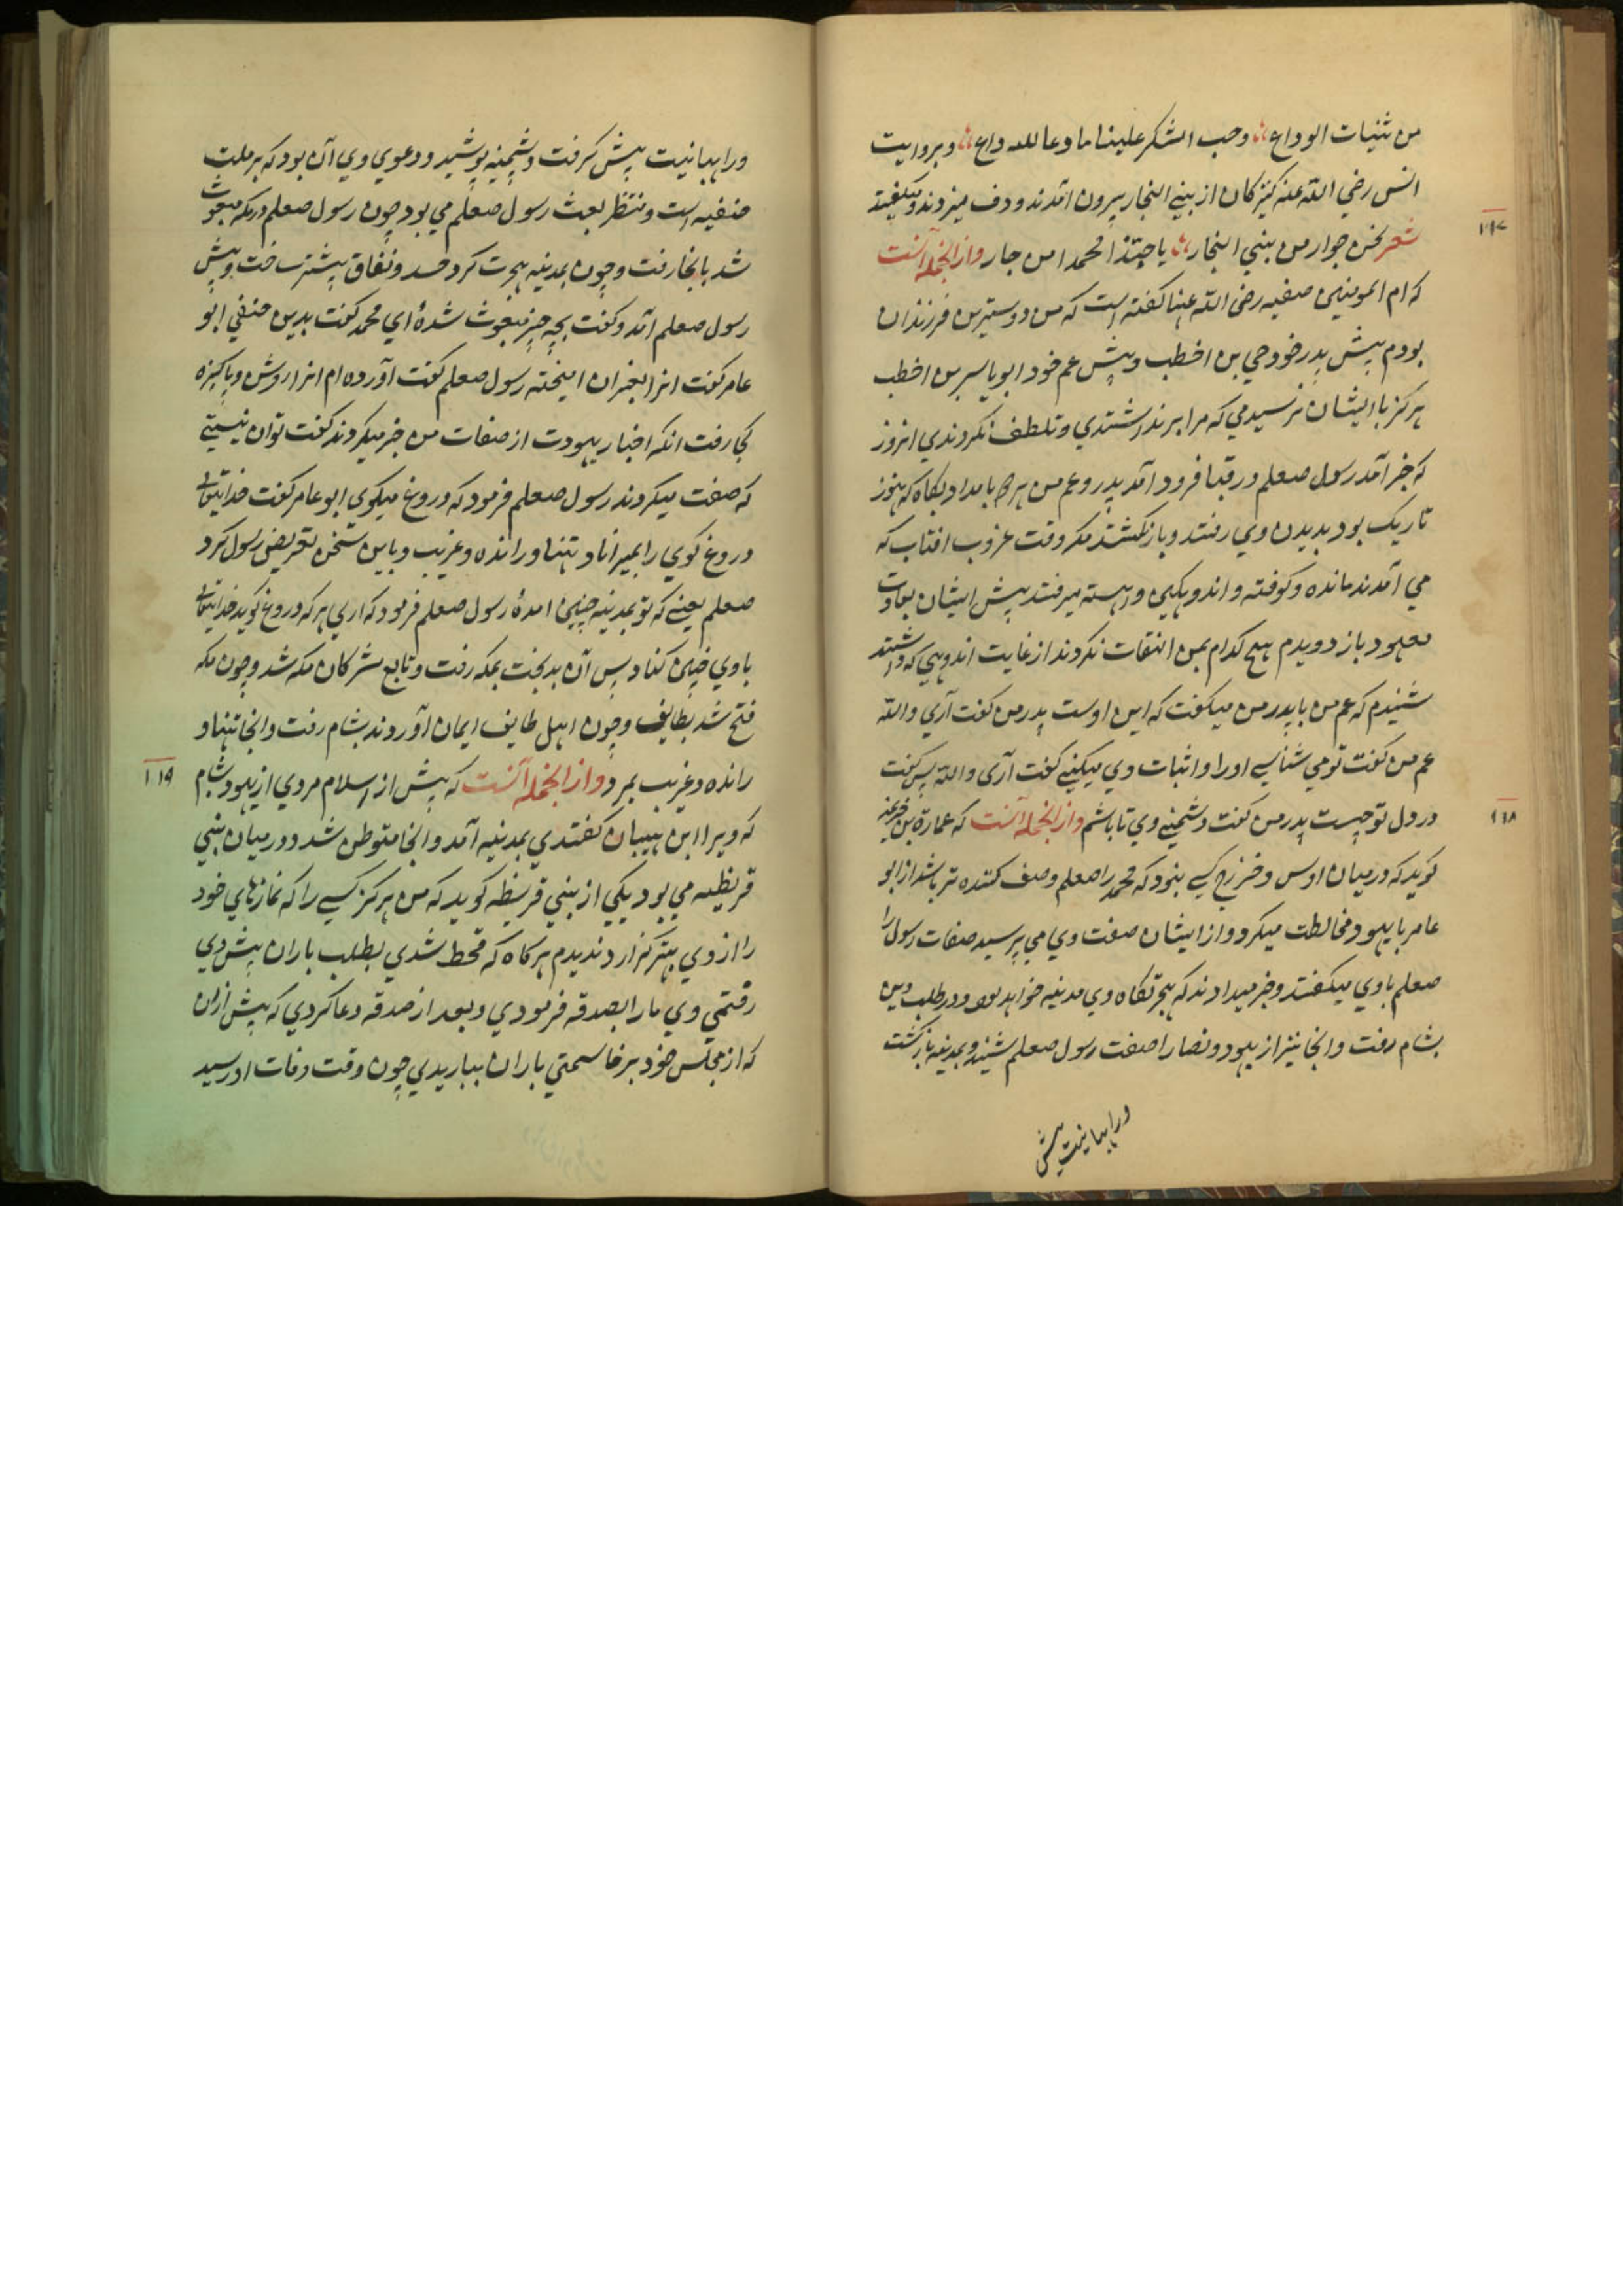 من ثنیات الوداع وجب الشکر علینا ما دعا لله داع وبروایت
انس رضي الله عنه کنیزکان از بنی النجار بیرون آمدند و دف میزدند و میگفتند
۱۱۷
شعر نحن جوار من بني النجار یا حبّذا محمدا من جار وازانجمله آنست
که ام المومنین صفیه رضی الله عنها گفته است که من دوسترین فرزندان
بودم پیش پدر خود حي بن اخطب و پیش عم خود ابو یاسر بن اخطب
هرکز با ایشان نرسیدمي که مرا برنداشتندي و تلطف نکردندي انروز
که خبر آمد رسول صعلم در قبا فرود آمد پدر و عم من بامداد پکاه که هنوز
تاریک بود بدیدن وي رفتند و بازنکشتند مکر وقت غروب افتاب که
مي آمدند مانده وکوفته و اندوهکین و اهسته میرفتند پیش ایشان بعادت
معهود باز دویدم هیچ کدام بمن التفات نکردند از غایت اندوهي که داشتند
شنیدم که عم من با پدر من میکفت که این اوست پدر من کفت آري والله
عم من کفت تو مي شناسي او را و اثبات وي میکنی کفت آری والله پس کفت
۱۱۸
در دل تو چیست پدر من کفت دشمنی وي تا باشم وازانجمله آنست که عمارة بن خزیمة
کوید که در میان اوس و خزرج کسی نبود که محمد را صعلم وصف کننده تر باشد از ابو
عامر با یهود مخالطت میکرد و از ایشان صفت وي مي پرسید صفات رسول را
صعلم باوي میکفتند و خبر میدادند که هجرتکاه وي مدینه خواهد بود و در طلب دین
بشام رفت و انجا نیز از یهود و نصارا صفت رسول صعلم شنید و بمدینه بازکشت
ورهبانیت پیش
ورهبانیت پیش کرفت و پشمینه پوشید و دعوي وي آن بود که بر ملت
حنفیه است و منتظر بعثت رسول صعلم مي بود چون رسول صعلم در مکه مبعوث
شد بانجا رفت و چون بمدینه هجرت کرد حسد و نفاق پیشتر ساخت و پیش
رسول صعلم آمد و کفت بچه چیز مبعوث شدۀ اي محمد کفت بدین حنفي ابو
عامر کفت انرا بغیر ان امیخته رسول صعلم کفت آورده ام انرا روشن و پاکیزه
کجا رفت انکه احبار یهودت از صفات من خبر میکردند کفت تو ان نیستی
که صفت میکردند رسول صعلم فرمود که دروغ میکوي ابو عامر کفت خدایتعالی
دروغ کوي را بمیراناد تنها و رانده و غریب و باین سخن تعریض رسول کرد
صعلم یعنی که تو بمدینه چنین امدۀ رسول صعلم فرمود که اري هر که دروغ کوید خدایتعالی
باوي چنین کناد پس آن بدبخت بمکه رفت و تابع مشرکان مکه شد و چون مکه
فتح شد بطایف و چون اهل طایف ایمان آوردند بشام رفت و انجا تنها و
۱۱۹
رانده و غریب بمرد وازانجمله آنست که پیش از اسلام مردي از یهود شام
که ویرا ابن هیبان کفتندي بمدینه آمد و انجا متوطن شد و در میان بنی
قریظه مي بود یکي از بني قریظه کوید که من هرکز کسی را که نمازهاي خود
را از وي بهتر کزارد ندیدم هرکاه که قحط شدي بطلب باران پیش وي
رفتمي وي ما را بصدقه فرمودي و بعد از صدقه دعا کردي که پیش ازان
که از مجلس خود برخاستمي باران بباریدي چون وقت وفات او رسید